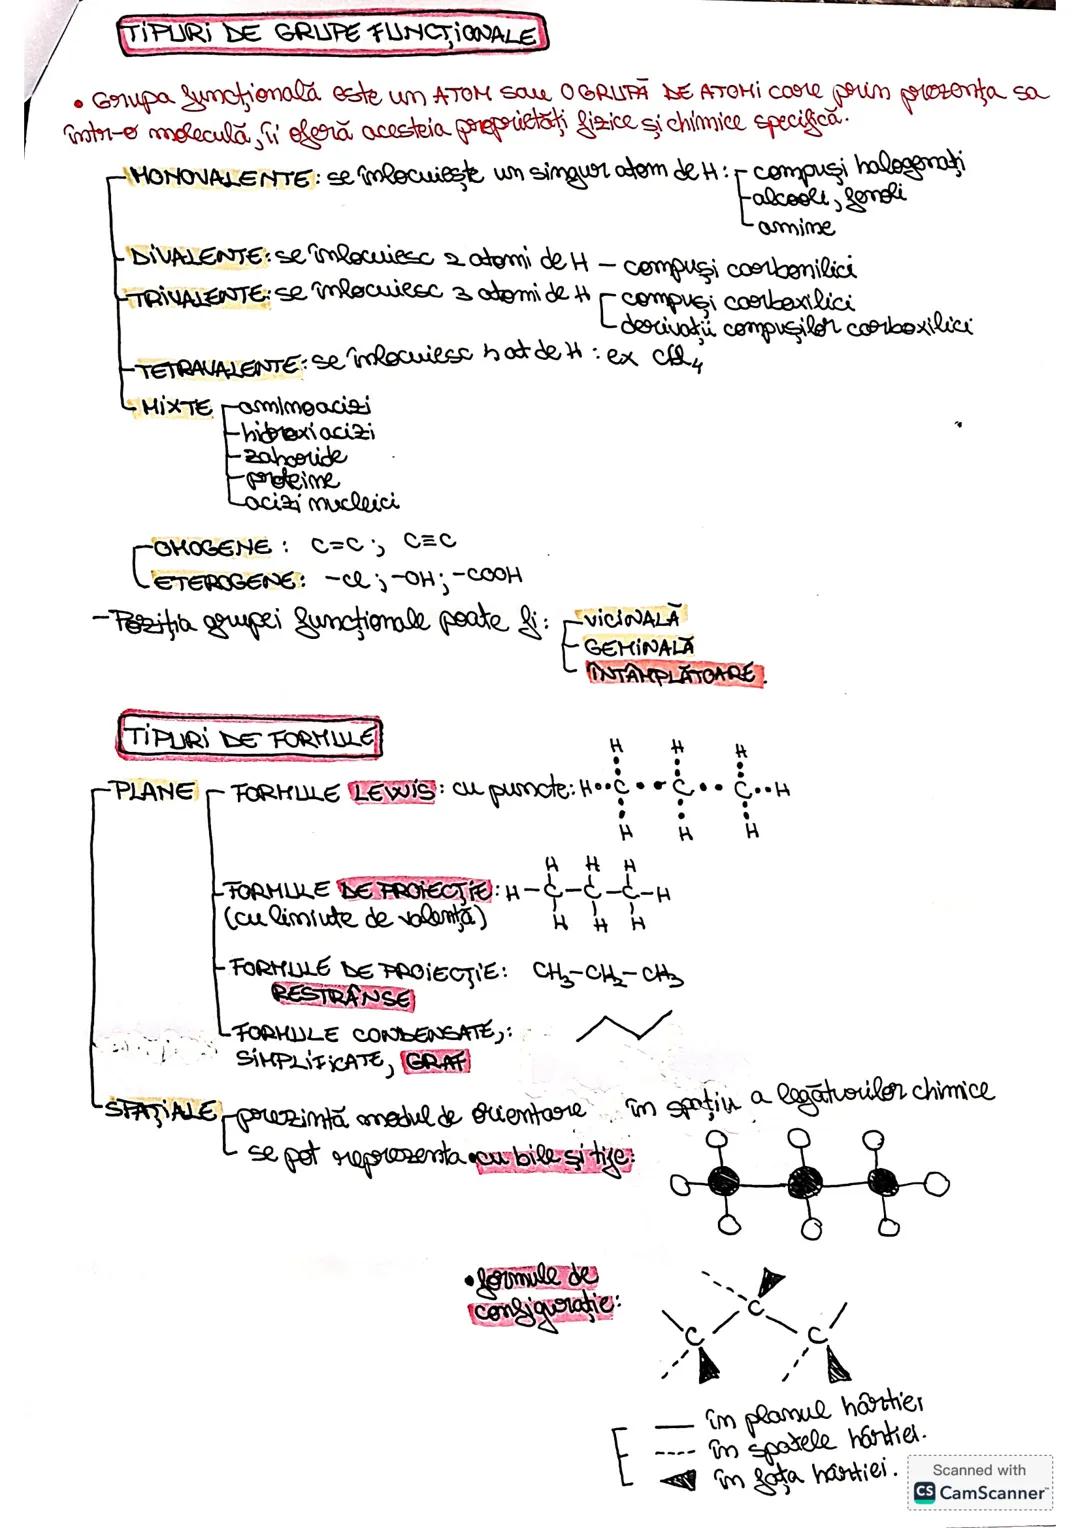 TIPURI DE GRUPE FUNCȚIONALE
• Grupa funcțională este un ATOM sau O GRUPĂ DE ATOMI care prin prezența sa
într-o moleculă, îi oferă acesteia proprietăți fizice și chimice specifică.
MONOVALENTE: se înlocuiește un singur atom de H: compuși halogenați
alcooli, fenoli
amine
DIVALENTE: se înlocuiesc 2 atomi de H - compuși carbonilici
TRIVALENTE: se înlocuiesc 3 atomi de H compuși carboxilici
derivații compușilor carboxilici
TETRAVALENTE: se înlocuiesc 4 at de H : ex CCl4
MIXTE aminoacizi
hidroxiacizi
zaharide
proteine
acizi nucleici
OMOGENE : C=C ; C≡C
ETEROGENE: -Cl ; -OH ; -COOH
- Poziția grupei funcționale poate fi: VICINALĂ
GEMINALĂ
ÎNTÂMPLĂTOARE.
TIPURI DE FORMULE
H H H
PLANE FORMULE LEWIS: cu puncte: H••C••C••C••H
H H H
H H H
FORMULE DE PROIECȚIE: H-C-C-C-H
(cu liniuțe de valență) H H H
FORMULE DE PROIECȚIE: CH3-CH2-CH3
RESTRÂNSE
FORMULE CONDENSATE,:
SIMPLIFICATE, GRAF
SPAȚIALE prezintă modul de orientare în spațiu a legăturilor chimice
se pot reprezenta • cu bile și tije:
• formule de
configurație:
C
C C
în planul hârtiei
---- în spatele hârtiei.
în fața hârtiei.
Scanned with
CS CamScanner™